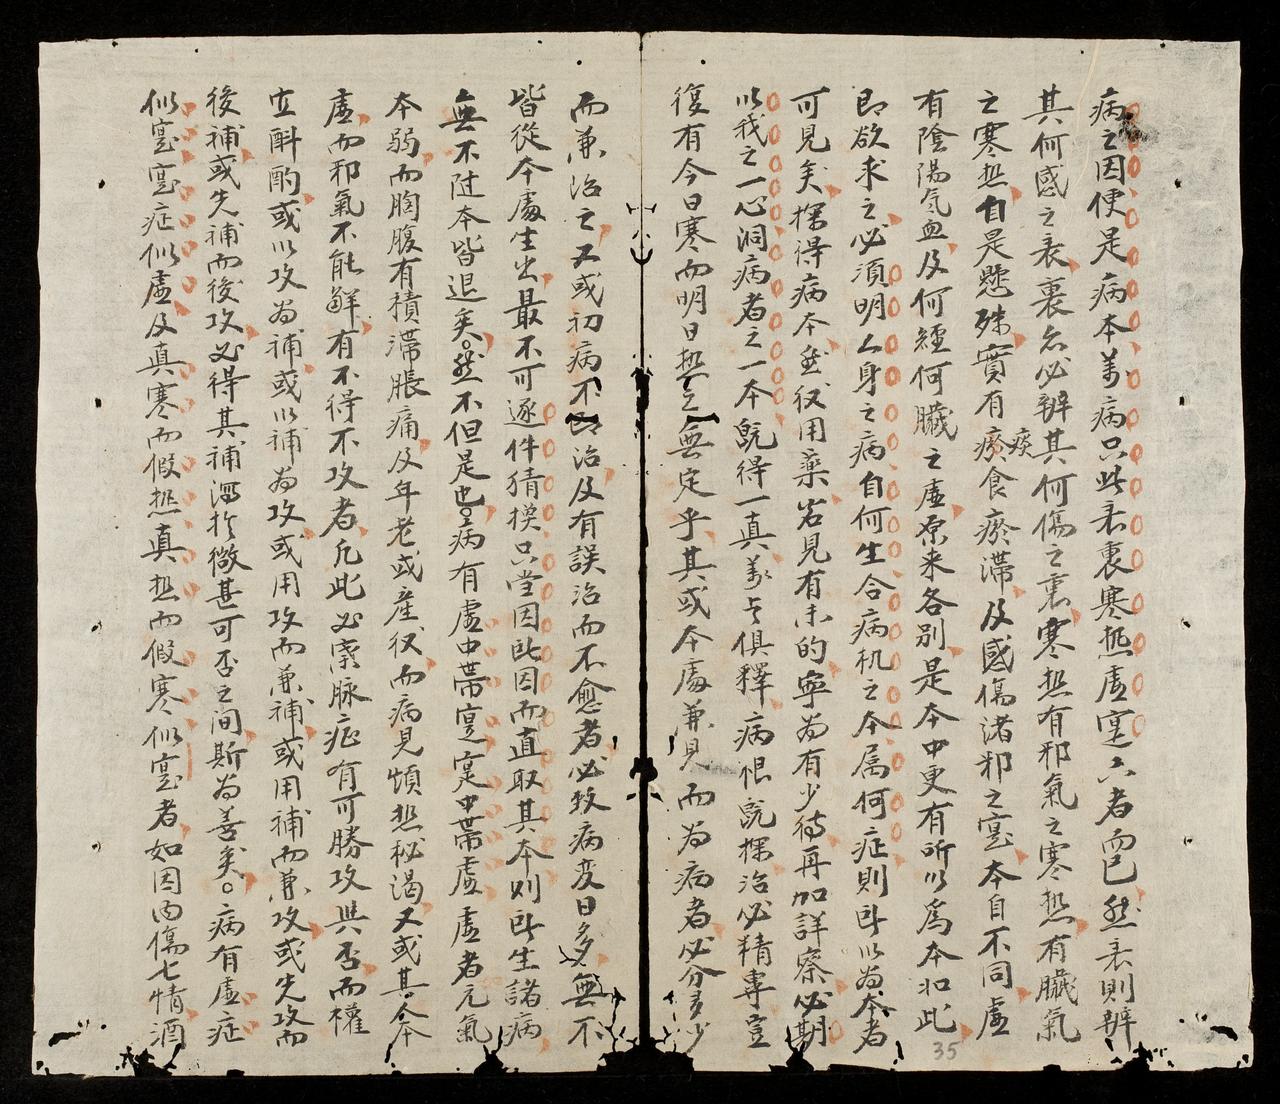 病之因便是病本萬病只此表裏寒热虚寔六者而已然表則辨
其何感之表裏亦必辨其何傷之裏寒热有邪氣之寒热有臟氣
之寒热自是懸殊實有痰食瘀滞及感傷诸邪之寔本自不同虚
痰
有陰陽氣血及何經何臟之虚原来各别是本中更有所以為本如此
即欲求之必須明人身之病自何生合病机之本属何症則即以為本者
可見矣探得病本然後用藥若見有未的寧为有少待再加詳察必期
以我之一心洞病者之一本既得一真萬俱釋病恨既探治必精專豈
復有今日寒而明日热之無定乎其或本處兼見而为病者必分多少
而兼治之又或初病不即治及有誤治而不愈者必致病变日多無不
皆從本處生出最不可逐件猜模只當因此因而直取其本則所生諸病
無不随本皆退矣然不但是也病有虚中帶寔寔中帶虚虚者元氣
本弱而胸腹有積滞脹痛及年老或産後而病見煩热秘渴又或其人本
虚而邪氣不能解有不得不攻者凢此必審脉症有可勝攻與否而權
立斟酌或以攻为補或以補为攻或用攻而兼補或用補而兼攻或先攻而
後補或先補而後攻必得其補瀉於微甚可否之间斯为善矣病有虚症
似寔寔症似虚及真寒而假热真热而假寒似寔者如因内傷七情酒
35